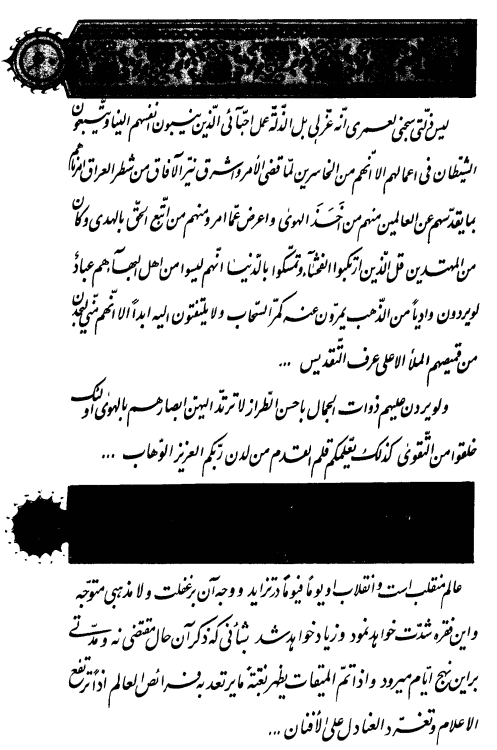 ليس ذلّتي سجني لعمري انّه عزّ لي بل الذّلّة عمل احبّائي الّذين ينسبون انفسهم الينا ويتّبعون
الشّيطان في اعمالهم الا انّهم من الخاسرين لمّا قضي الأمر واشرق نيّر الآفاق من شطر العراق امرناهم
بما يقدّسهم عن العالمين منهم من اخذ الهوى واعرض عمّا امر ومنهم من اتّبع الحقّ بالهدى وكان
من المهتدين قل الّذين ارتكبوا الفحشآء وتمسّكوا بالدّنيا انّهم ليسوا من اهل البهآء هم عباد
لو يردون وادياً من الذّهب يمرّون عنه كمرّ السّحاب ولا يلتفتون اليه ابداً الا انّهم منّي ليجدنّ
من قميصهم الملأ الاعلى عرف التّقديس ...
ولو يردن عليهم ذوات الجمال باحسن الطّراز لا ترتدّ اليهنّ ابصارهم بالهوى اولئك
خلقوا من التّقوى كذلك يعلّمكم قلم القدم من لدن ربّكم العزيز الوهاب ...
عالم منقلب است و انقلاب او يوماً فيوماً در تزايد و وجه آن بر غفلت و لا مذهبى متوجّه
و اين فقره شدّت خواهد نمود و زياد خواهد شد بشأنى كه ذكر آن حال مقتضى نه و مدّتى
بر اين نهج ايّام ميرود و اذا تمّ الميقات يظهر بغتةً ما يرتعد به فرائص العالم اذاً ترتفع
الاعلام و تغرّد العنادل على الأفنان ...